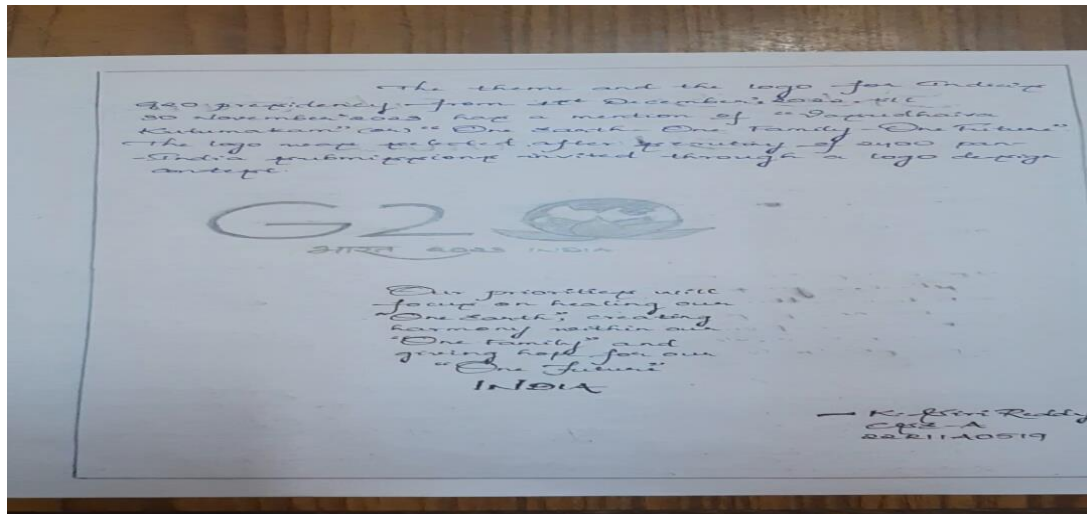 The theme and the logo for India's
G20 presidency from 1st December, 2022 till
30 November 2023 has a mention of "Vasudhaiva
Kutumakam" (or) "One Earth - One Family - One Future"
The logo was selected after scrutiny of 2400 pan-
India submissions invited through a logo design
contest.
G20
भारत 2023 INDIA
Our priorities will
focus on healing our
"One Earth", creating
harmony within our
"One Family" and
giving hope for our
"One Future"
INDIA
Reddy
CSE-A
22211A0519